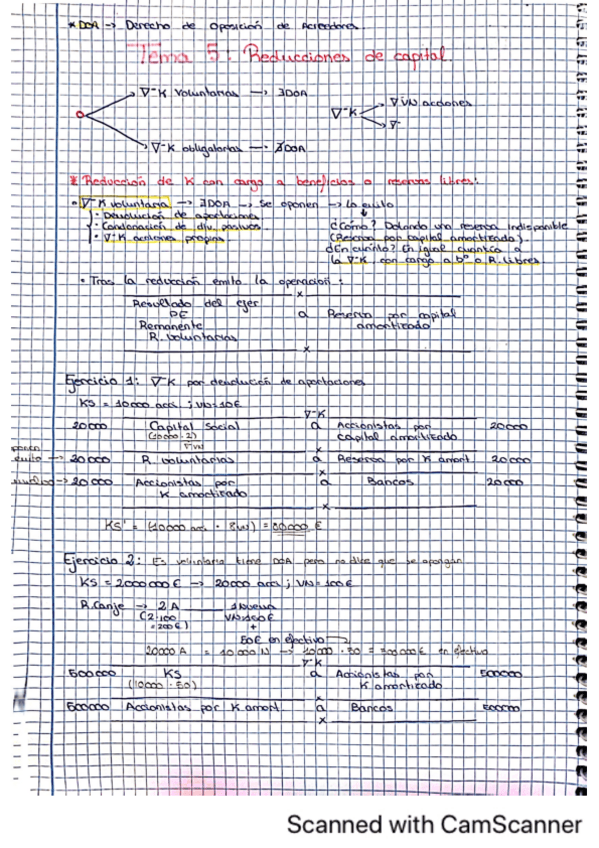 * DOA → Derecho de Oposición de Acreedores.
Tema 5: Reducciones de capital.
∇⁻K voluntarias → ∃DOA
∇⁻K obligatorias → ∄DOA
∇⁻K
∇ VN acciones
∇⁻
* Reducción de K con cargo a beneficios o reservas libres:
• ∇⁻K voluntaria → ∃DOA → Se oponen → Lo evito
• Devolución de aportaciones
• Condonación de div. pasivos
• ∇⁻K acciones propias
¿Cómo? Dotando una reserva indisponible
(Reserva por capital amortizado).
¿En cuánto? En igual cuantía a
la ∇⁻K con cargo a bº o R. libres
• Tras la reducción emito la operación:
x
Resultado del ejer
PE
Remanente
R. voluntarias
a Reserva por capital amortizado
x
Ejercicio 1: ∇⁻K por devolución de aportaciones
KS = 10000 acc ; VN=10€
∇⁻K
20000 Capital Social a Accionistas por capital amortizado 20000
(10000·2)
x
evito → 20000 R. voluntarias a Reserva por K amort. 20000
x
→ 20000 Accionistas por K amortizado a Bancos 20000
x
KS' = (10000 acc · 8VN) = 80000 €
Ejercicio 2: Es voluntaria tiene DOA pero no dice que se opongan
KS = 2000000€ → 20000 acc ; VN=100€
R. Canje → 2A
(2·100 = 200€)
1 nueva
VN=100€
+
50€ en efectivo
20000A = 10000N → 10000·50 = 500000€ en efectivo
∇⁻K
500000 KS a Accionistas por K amortizado 500000
(10000·50)
x
500000 Accionistas por K amort. a Bancos 500000
x
Scanned with CamScanner